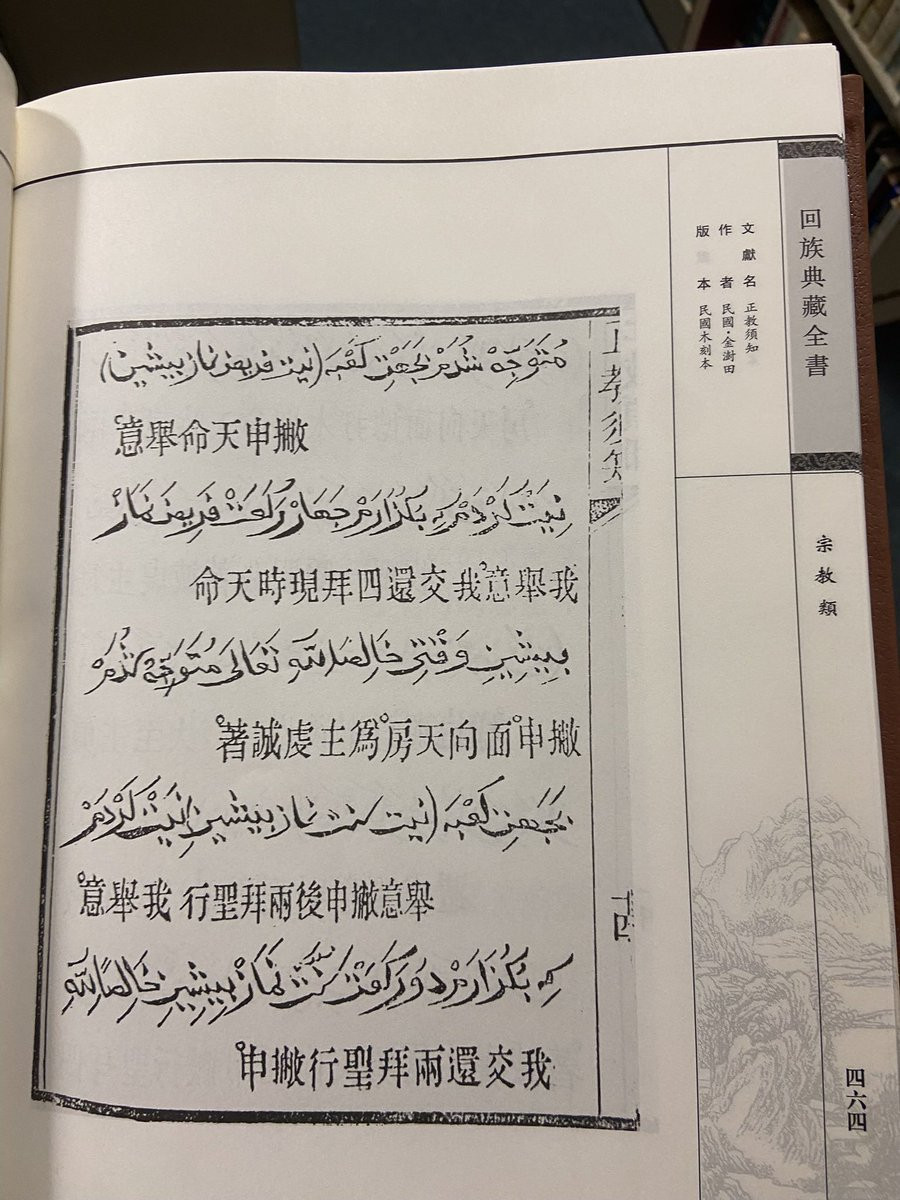 回族典藏全書
文獻名 正教須知
作者 民國·金澍田
版本 民國木刻本
宗教類
四六四
正教須知
十四
مُتَوَجِّهْ شُدَمْ بِجَهَتِ كَعْبَه (نيت فريضه نماز پيشين)
撇申天命舉意
نِيَّتْ كَرْدَمْ كِه بُكْذَارَمْ جَهَارْ رَكَعَتْ فَرِيضَه نَمَازِ
我舉意我交還四拜現時天命
بِيشِينِ وَقْتِى خَالِصًا لِلّٰهِ تَعَالَى مُتَوَجِّهْ شُدَمْ
撇申面向天房爲主虔誠著
بِجَهَتِ كَعْبَه (نيت سنت نماز پيشين) نِيَّتْ كَرْدَمْ
舉意撇申後兩拜聖行 我舉意
كِه بُكْذَارَمْ دُو رَكَعَتْ سُنَّتْ نَمَازِ بِيشِينِ خَالِصًا لِلّٰهِ
我交還兩拜聖行撇申